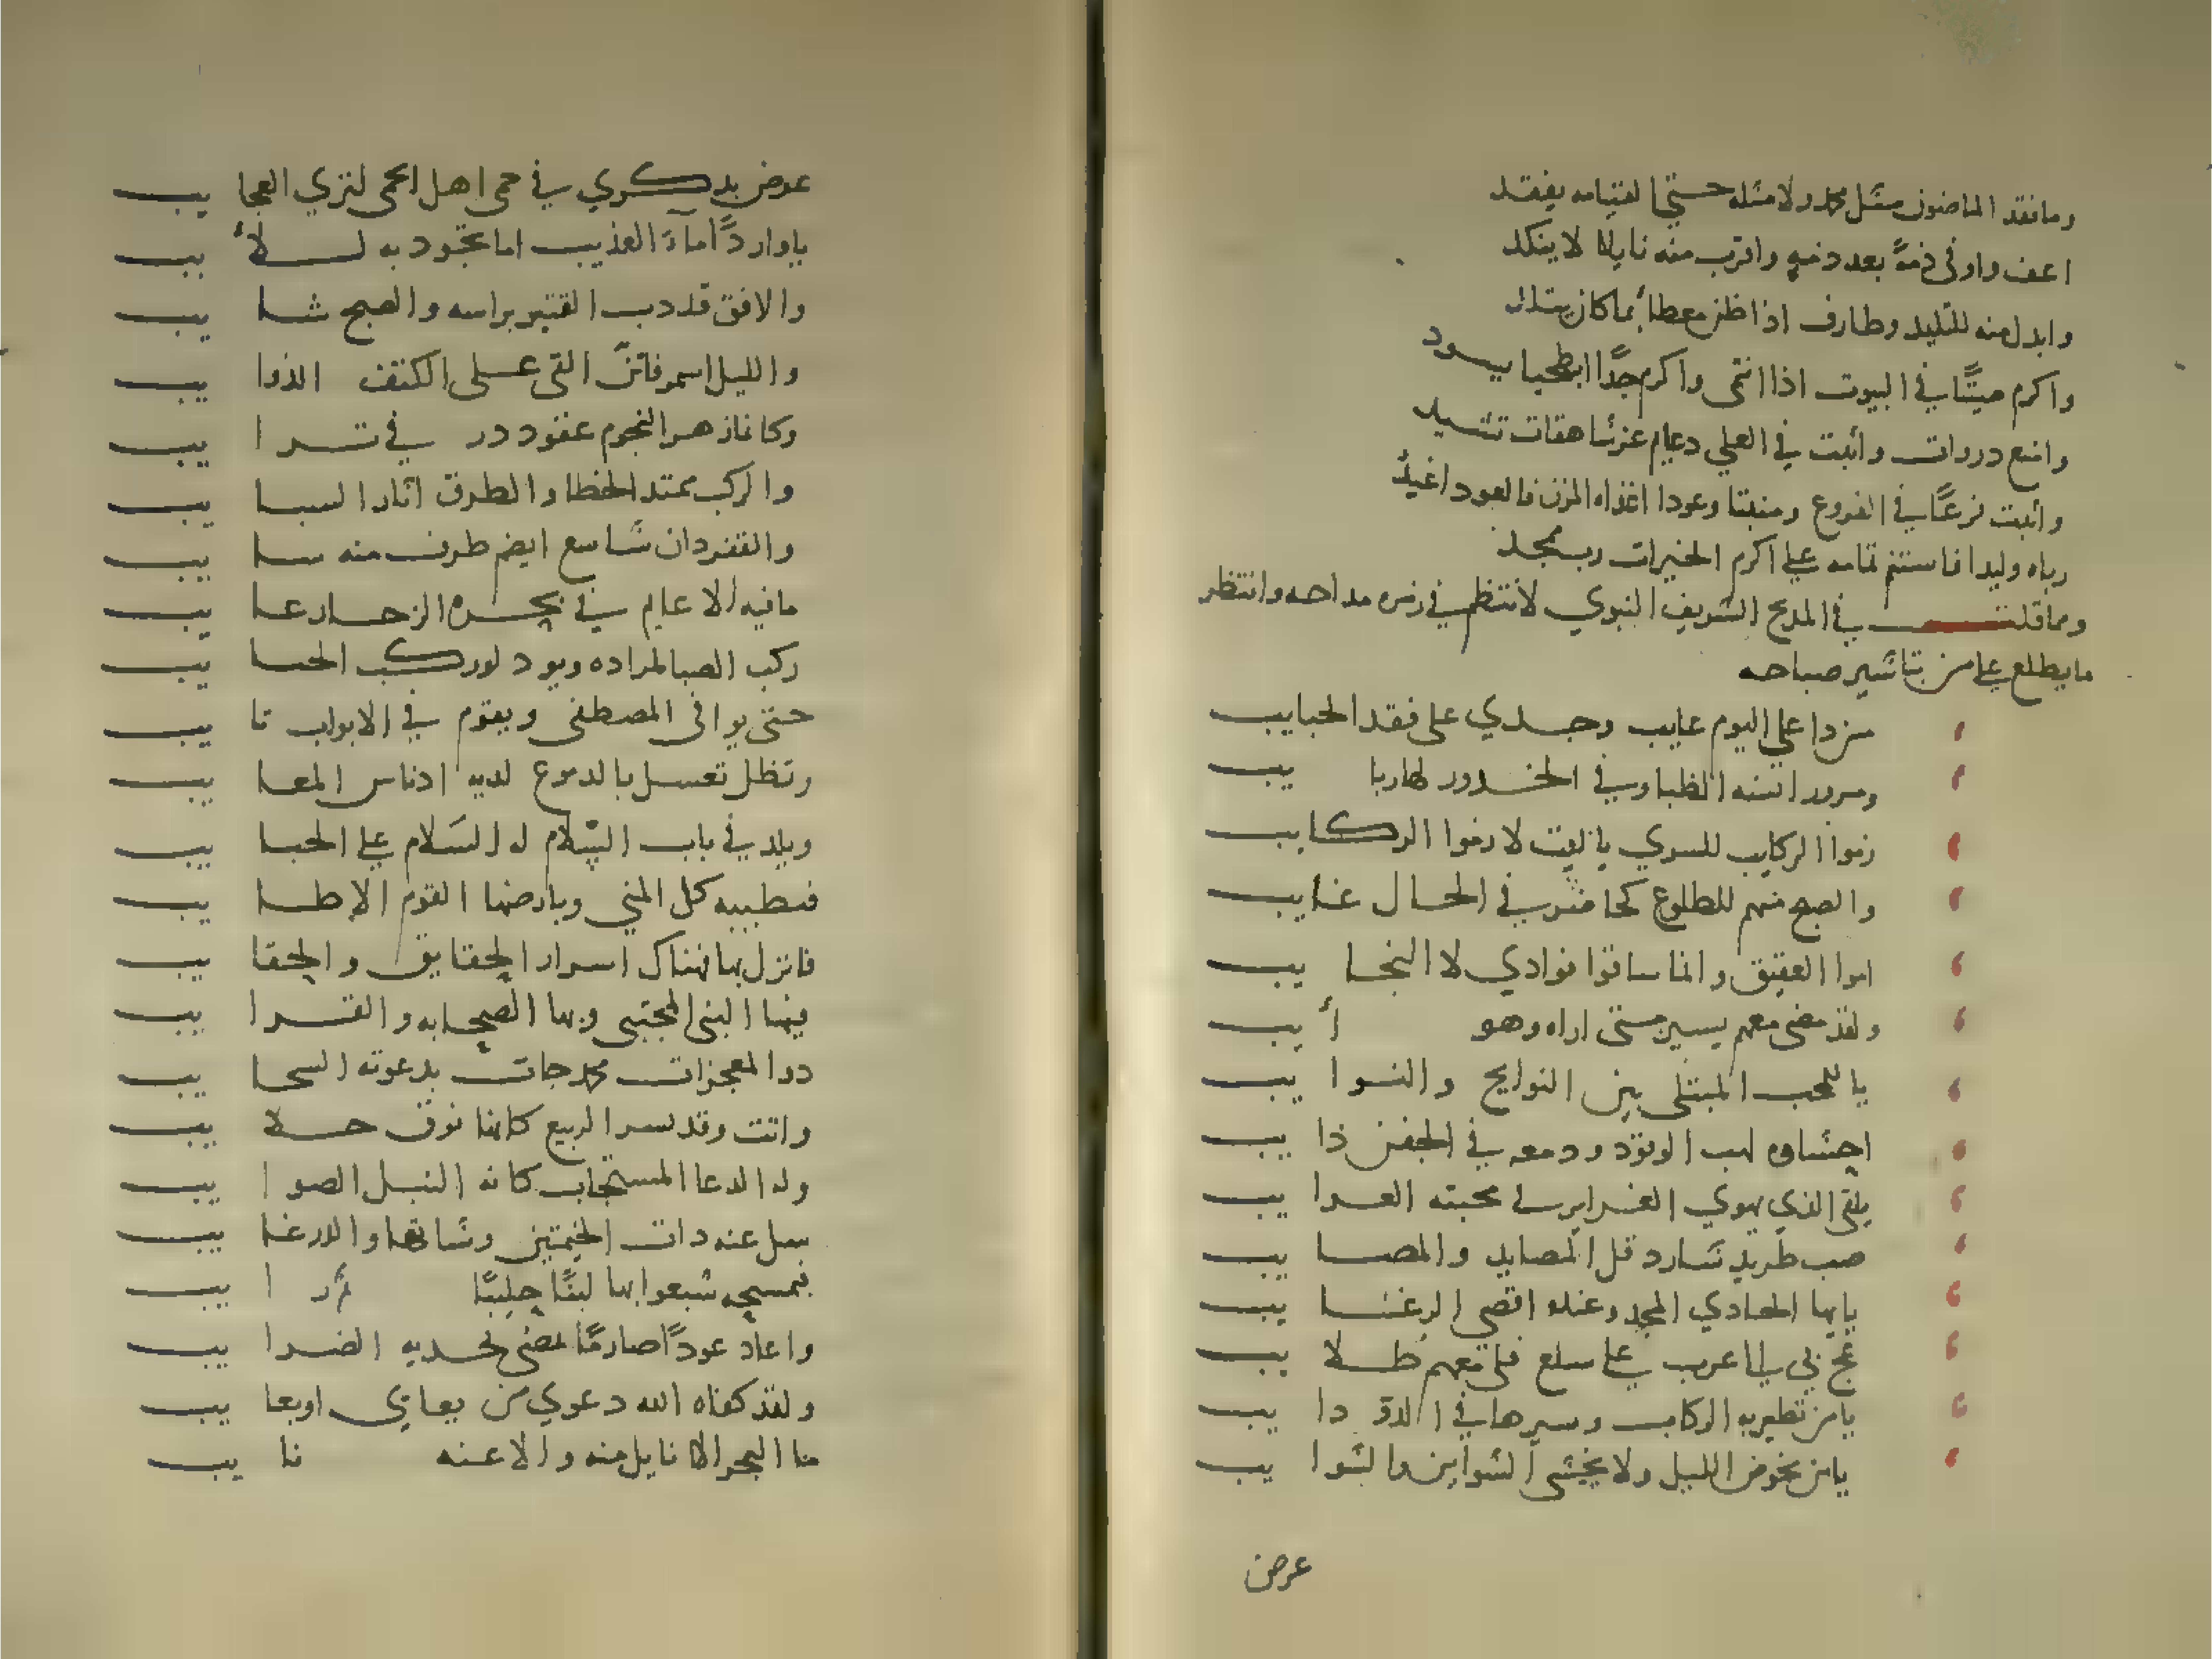 وما فقد الماضون مثل محمد ولا مثله حتى القيامه يفقد
اعف واوفى ذمةً بعد ذمه واقرب منه نايلا لا ينكد
وابدل منه للتليد وطارف اذا ظن معطأ بما كان يتلد
واكرم ميتًا في البيوت اذا انتمى واكرم جدًا ابطحيا يسود
وامنع دروات واثبت في العلي دعايم عز شاهقات تشيد
واثبت فرعًا في الفروع ومنبتا وعودا اغذاه المزن فالعود اغيد
رباه وليدا فاستتم تمامه علي اكرم الخيرات رب ممجد
ومما قلت في المديح الشريف النبوي لانتظم في زمره مداحه وانتظر
ما يطلع علي من بتاشير صباحه
من ذا علي اليوم عايب وجدي على فقد الحبايب
الظبا وفي الخدور لها ربا يب
زموا الركايب للسري ياليت لا زموا الركايب
والصبح منهم للطلوع في الحال غايب
اموا العقيق وانما ساقوا فوادي لا النجا يب
ولقد مضى معهم يسير متى اراه وهو أ يب
يا للمحب المبتلى بين النوايح والنوا يب
احشاوه لهب الوقود ودمعه في الجفن ذا يب
يلقى الذي يهوي الغرايب في محبته الغرا يب
صب طريد شارد قل المصايد والمصا يب
يايها الحادي المجد وعنده اقصى الرغا يب
عج بي على عرب علي سلع فلي معهم طلا يب
يا من تطير به الركاب وسيرها في الدو دا يب
يا من يخوض الليل ولا يخشى الشواين والشوا يب
عرض
عرض بذكري في حمى اهل الحمى لتري العجا يب
يا واردًا مآء العذيب اما تجود به لـلأ يب
والافق قد دب القتير براسه والصبح شا يب
والليل اسمر فاتنً القى على الكتف الذوا يب
وكانما زهر النجوم عقود در في ترا يب
والركب ممتد الخطا والطرف اثار السبا يب
والقفر دان شاسع ايضم طرف منه سا يب
ما فيه الا عايم في بحره الزخار عا يب
ركب الصبا لمراده ويود لو ركب الحبا يب
حتى يوافى المصطفى ويقوم في الابواب نا يب
وتظل تغسل بالدموع لديه ادناس المعا يب
وبلد في باب السلام له السلام علي الحبا يب
فبطيبه كل المني وبارضها القوم الاطا يب
فانزل بها فهناك اسرار الحقايق والحقا يب
فيها النبي المجتبى وبها الصحابه والقرا يب
ذو المعجزات محمد جات بدعوته السحا يب
واتت وقد سر الربيع كانها نوق حلا يب
وله الدعا المستجاب كانه النبل الصوا يب
سل عنه دات الخيمتين وشاتها والدر غا يب
فبمسحه شبعوا بها لبنًا حليبًا را يب
واعاد عودًا صارمًا امضى بحديه الضرا يب
ولقد كفاه الله دعوي من يعادي او يعا يب
ما البحر الا نايل منه والا عنه نا يب